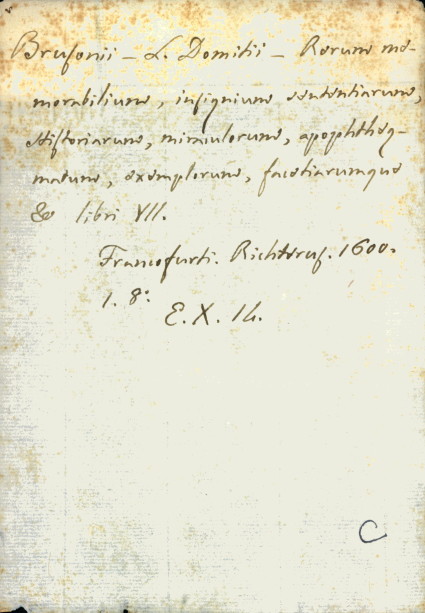 Brusonii - L. Domitii - Rerum me-
morabilium, insignium sententiarum,
Historiarum, miraculorum, apophtheg-
matum, exemplorum, facetiarumque
&c libri VII.
Francofurti. Richterus. 1600.
1. 8°.
E. X. 14.
C